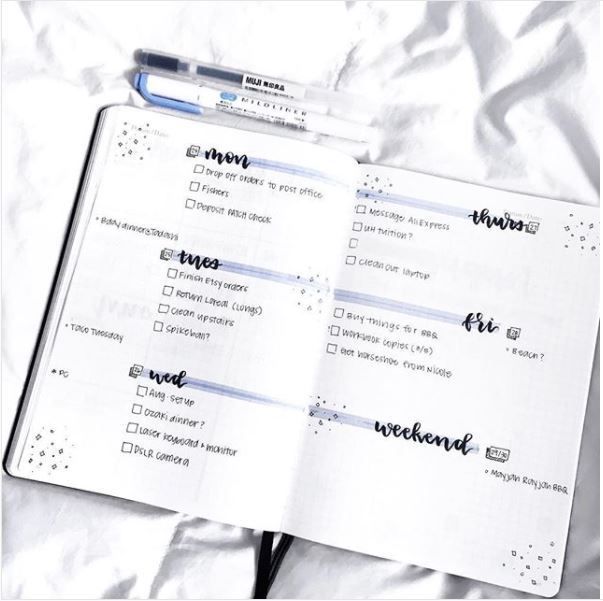 MUJI 無印良品
MILDLINER
mon
Drop off orders to post office
Fishers
Deposit PATCH check
• Bday dinner@Tadashi
tues
Finish Etsy orders
Return Loreal (Longs)
Clean upstairs
Spikeball?
• Taco Tuesday
wed
Aug setup
Ozaki dinner?
Laser keyboard & monitor
DSLR camera
thurs
27
Message AliExpress
UH tuition?
Clean out laptop
fri
28
Buy things for BBQ
Workbook copies
Get horseshoe from Nicole
• Beach?
weekend
29/30
Mayjah Rayjah BBQ